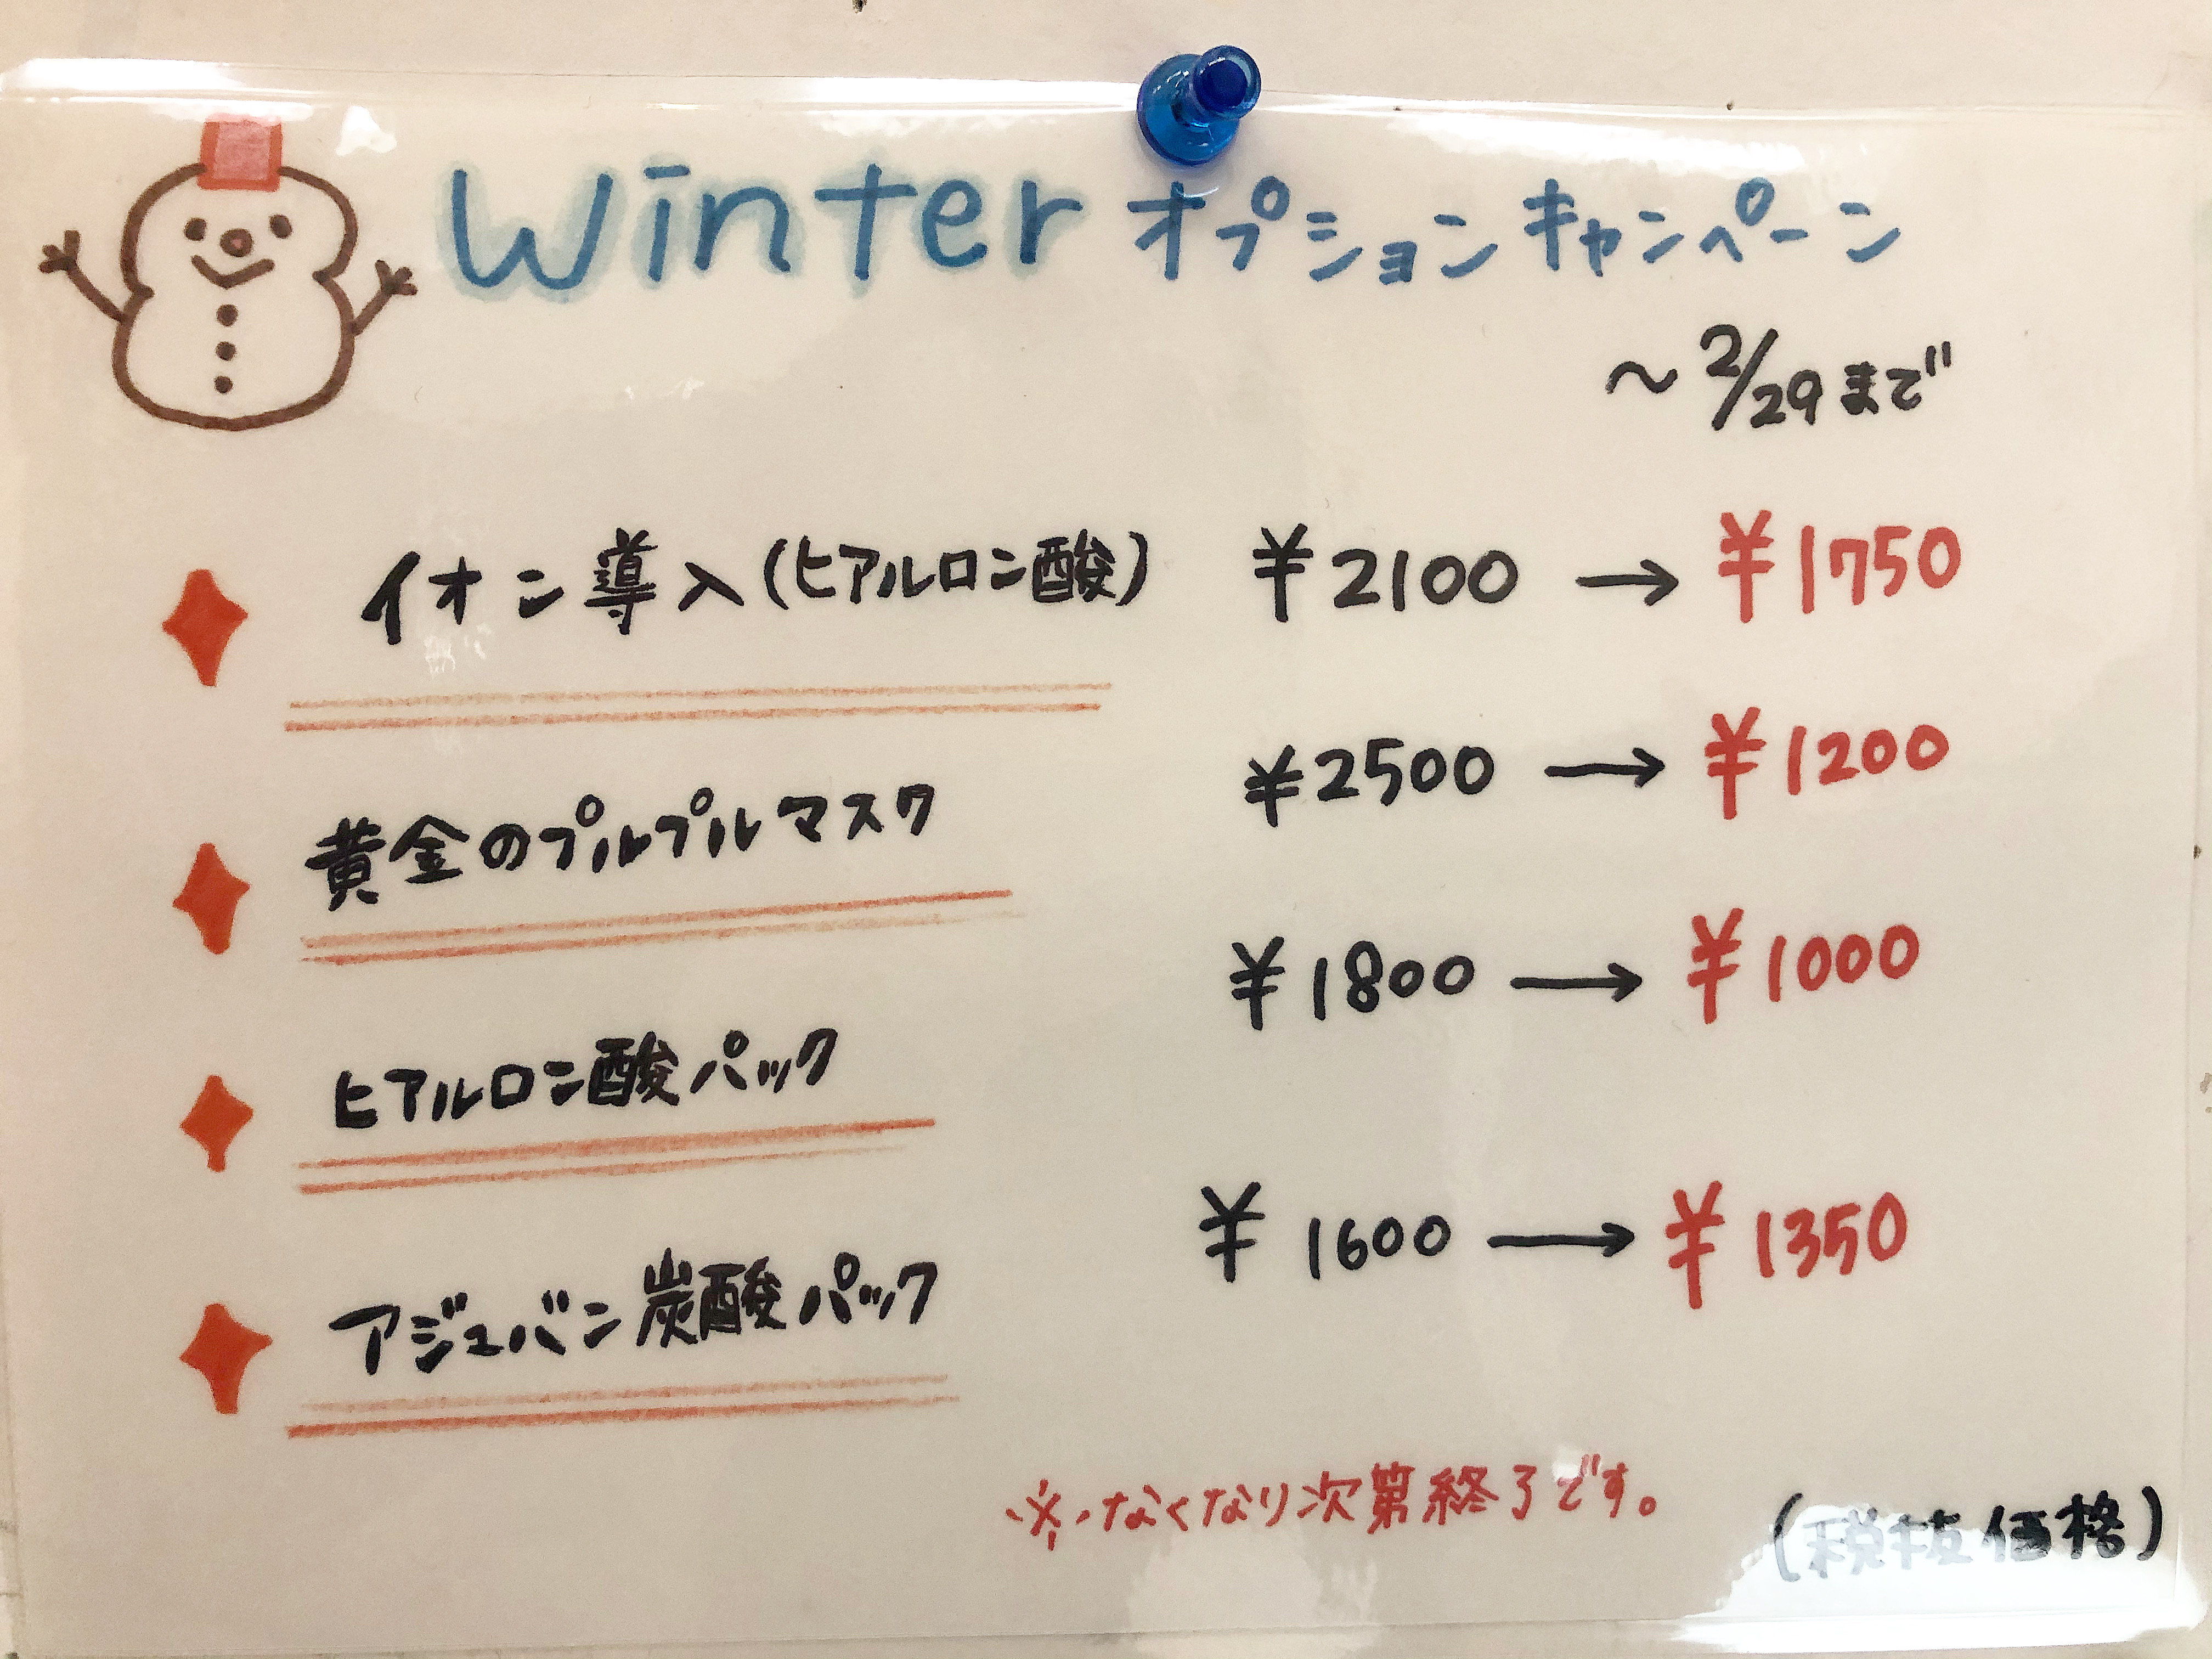 Winter オプションキャンペーン
〜2/29まで
イオン導入(ヒアルロン酸) ¥2100 → ¥1750
黄金のプルプルマスク ¥2500 → ¥1200
ヒアルロン酸パック ¥1800 → ¥1000
アジュバン炭酸パック ¥1600 → ¥1350
※なくなり次第終了です。
(税抜価格)